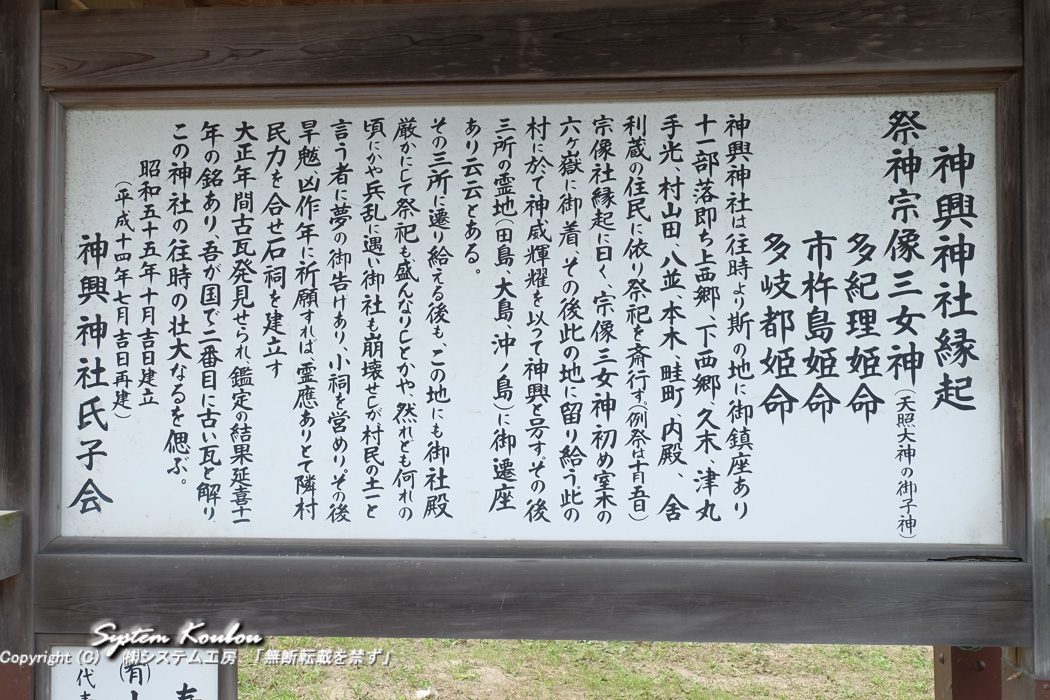 神興神社縁起
祭神宗像三女神(天照大神の御子神)
多紀理姫命
市杵島姫命
多岐都姫命
神興神社は往時より斯の地に御鎮座あり
十一部落即ち上西郷、下西郷、久末、津丸
手光、村山田、八並、本木、畦町、内殿、舎
利蔵の住民に依り祭祀を斎行す。(例祭は十月五日)
宗像社縁起に曰く、宗像三女神初め室木の
六ヶ嶽に御着、その後此の地に留り給う。此の
村に於て神威輝耀を以って神興と号す。その後
三所の霊地(田島、大島、沖ノ島)に御遷座
あり云云とある。
その三所に遷り給える後も、この地にも御社殿
厳かにして祭祀も盛んなりしとかや、然れども何れの
頃にかや兵乱に遇い御社も崩壊せしが村民の土一と
言う者に夢の御告けあり、小祠を営めり。その後
旱魃凶作年に祈願すれば、霊應ありとて隣村
民力を合せ石祠を建立す
大正年間古瓦発見せられ、鑑定の結果延喜十一
年の銘あり、吾が国で二番目に古い瓦と解り
この神社の往時の壮大なるを偲ぶ。
昭和五十五年十月吉日建立
(平成十四年七月吉日再建)
神興神社氏子会
System Koubou
Copyright (C) ㈱システム工房 「無断転載を禁ず」
(有)
代表